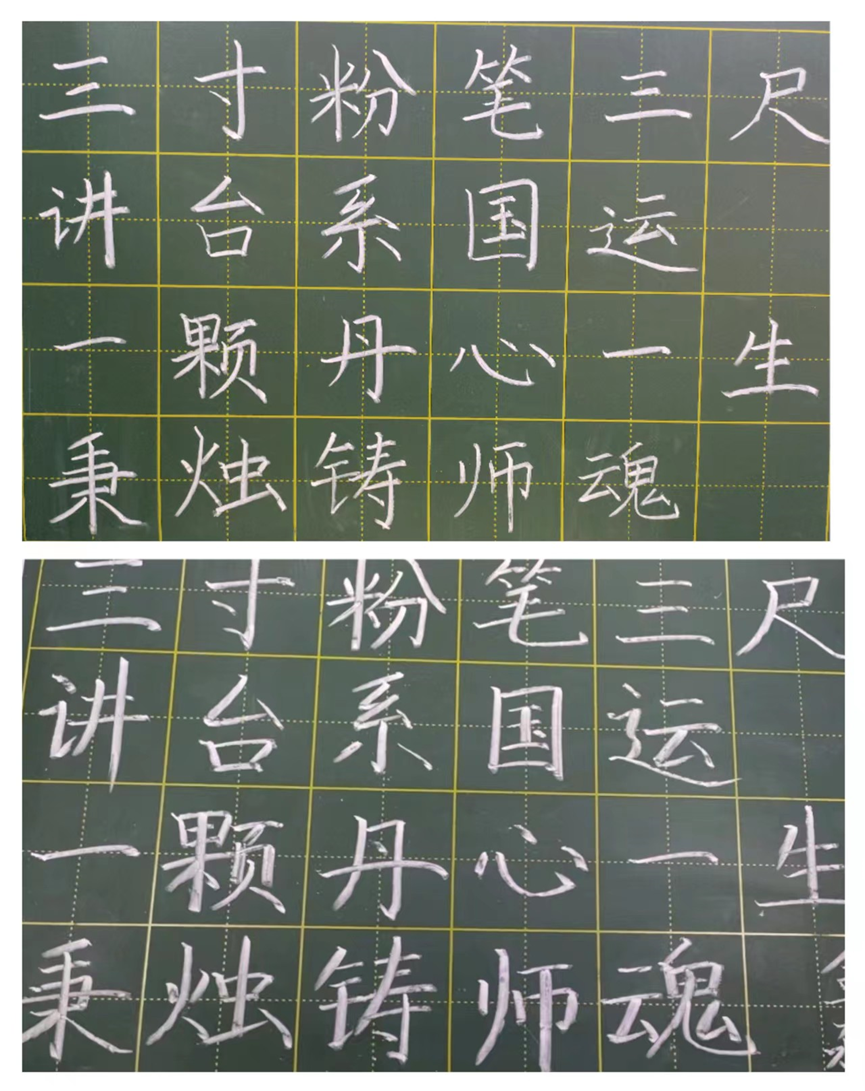 三寸粉笔三尺
讲台系国运
一颗丹心一生
秉烛铸师魂
三寸粉笔三尺
讲台系国运
一颗丹心一生
秉烛铸师魂